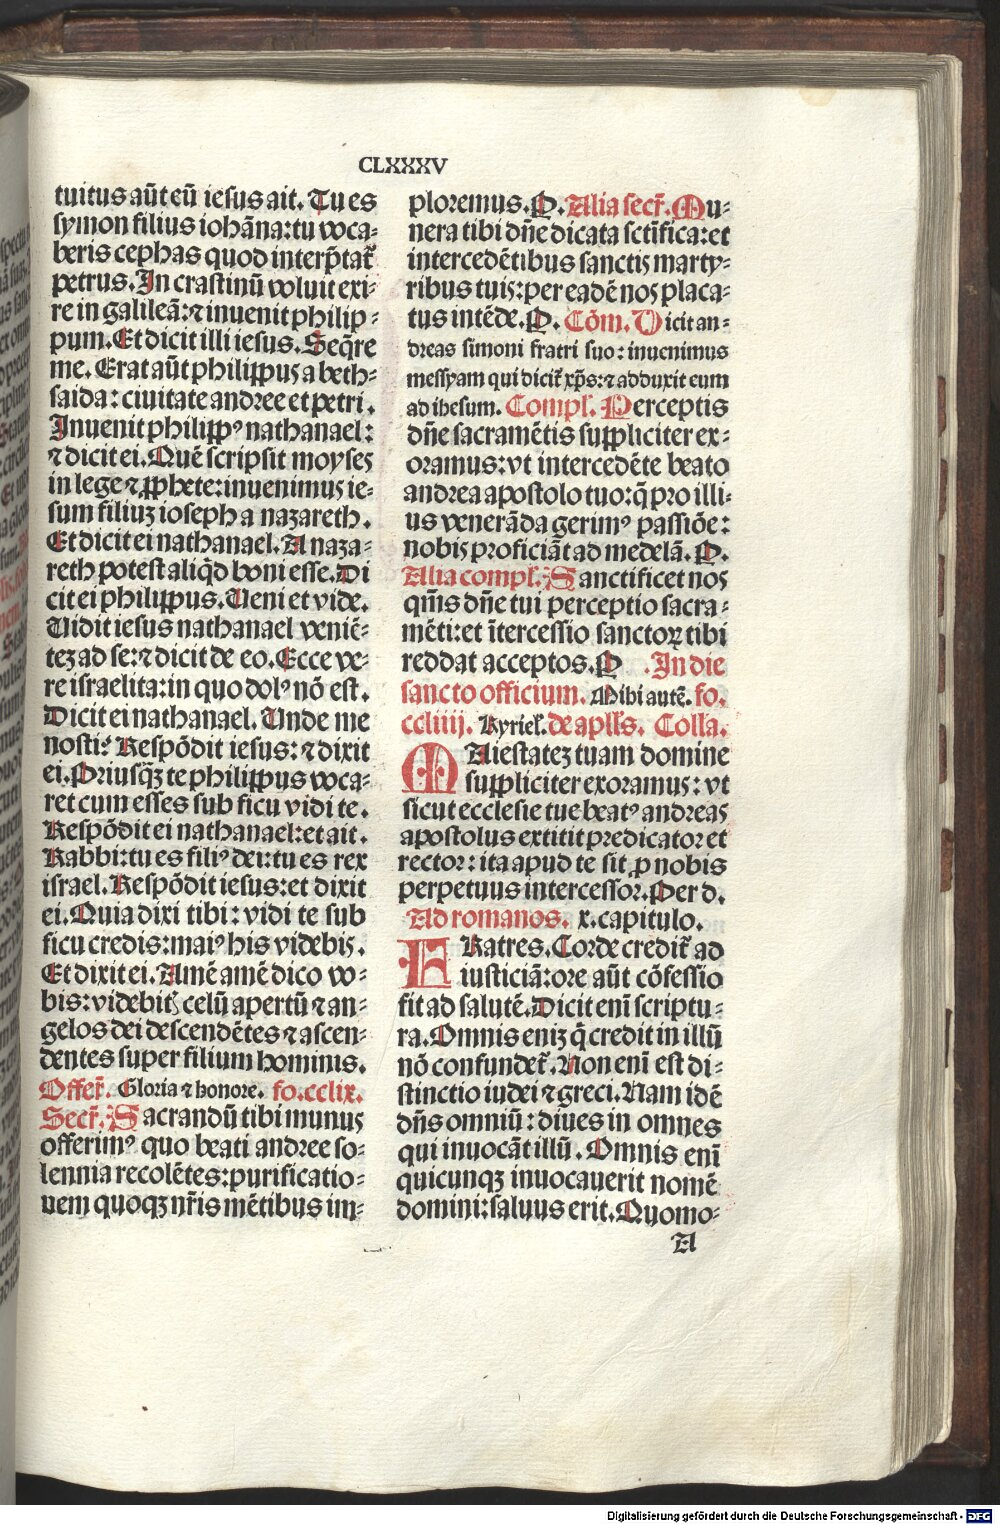 CLXXXV
tuitus aūt eū iesus ait. Tu es
symon filius iohāna: tu voca-
beris cephas quod interp̄tat᷑
petrus. In crastinū voluit exi-
re in galileā: ⁊ inuenit philip-
pum. Et dicit illi iesus. Seq̄re
me. Erat aūt philippus a beth-
saida: ciuitate andree et petri.
Inuenit philippꝰ nathanael:
⁊ dicit ei. Quē scripsit moyses
in lege ⁊ ꝓphete: inuenimus ie-
sum filiuꝫ ioseph a nazareth.
Et dicit ei nathanael. A naza-
reth potest aliq̄d boni esse. Di
cit ei philippus. Ueni et vide.
Uidit iesus nathanael veniē-
teꝫ ad se: ⁊ dicit de eo. Ecce ve-
re israelita: in quo dolꝰ nō est.
Dicit ei nathanael. Unde me
nosti? Respōdit iesus: ⁊ dixit
ei. Priusq̄ꝫ te philippus voca-
ret cum esses sub ficu vidi te.
Respōdit ei nathanael: et ait.
Rabbi: tu es filiꝰ dei: tu es rex
israel. Respōdit iesus: et dixit
ei. Quia dixi tibi: vidi te sub
ficu credis: maiꝰ his videbis.
Et dixit ei. Amē amē dico vo-
bis: videbitꝭ celū apertū ⁊ an-
gelos dei descendētes ⁊ ascen-
dentes super filium hominis.
Offer᷑. Gloria ⁊ honore. fo.cclix.
Secr᷑. Sacrandū tibi munus
offerimꝰ quo beati andree so-
lennia recolētes: purificatio-
nem quoqꝫ nr̄is mētibus im-
ploremus. P. Alia secr᷑. Mu-
nera tibi dn̄e dicata sc̄tifica: et
intercedētibus sanctis marty-
ribus tuis: per eadē nos placa-
tus intēde. P. Cōm. Dicit an-
dreas simoni fratri suo: inuenimus
messyam qui dicit᷑ xp̄s: ⁊ adduxit eum
ad ihesum. Compl̄. Perceptis
dn̄e sacramētis suppliciter ex-
oramus: vt intercedēte beato
andrea apostolo tuo: q̄ pro illi-
us venerāda gerimꝰ passiōe:
nobis proficiāt ad medelā. P.
Alia compl̄. Sanctificet nos
q̄m̄s dn̄e tui perceptio sacra-
mēti: et ītercessio sanctoꝝ tibi
reddat acceptos. P. In die
sancto officium. Mihi autē. fo.
ccliiij. Kyriel̄. de apl̄l̄s. Colla.
MAiestateꝫ tuam domine
suppliciter exoramus: vt
sicut ecclesie tue beatꝰ andreas
apostolus extitit predicator et
rector: ita apud te sit ꝓ nobis
perpetuus intercessor. Per d.
Ad romanos. x. capitulo.
FRatres. Corde credit᷑ ad
iusticiā: ore aūt cōfessio
fit ad salutē. Dicit enī scriptu-
ra. Omnis eniꝫ q̄ credit in illū
nō confundet᷑. Non enī est di-
stinctio iudei ⁊ greci. Nam idē
dn̄s omniū: diues in omnes
qui inuocāt illū. Omnis enī
quicunqꝫ inuocauerit nomē
domini: saluus erit. Quomo-
A
Digitalisierung gefördert durch die Deutsche Forschungsgemeinschaft - DFG